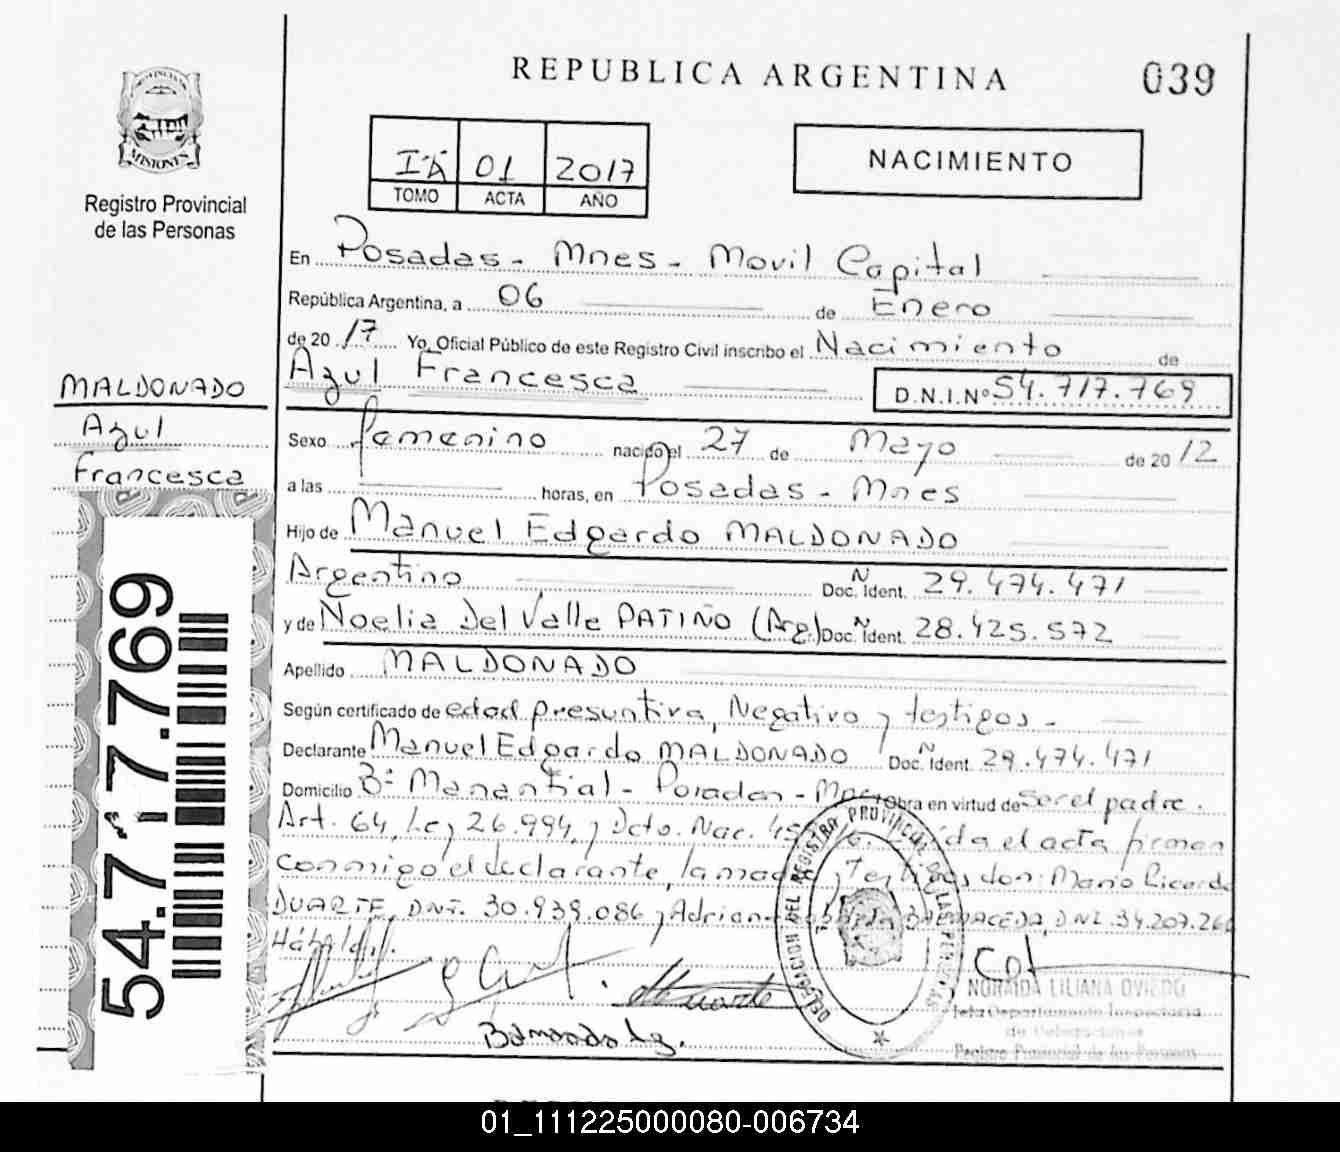 REPUBLICA ARGENTINA
039
PROVINCIA DE
MISIONES
Registro Provincial
de las Personas
IA 01 2017
TOMO ACTA AÑO
NACIMIENTO
En Posadas - Mnes - Movil Capital
República Argentina, a 06 de Enero
de 2017 Yo, Oficial Público de este Registro Civil inscribo el Nacimiento de
Azul Francesca D.N.I.Nº 54.717.769
MALDONADO
Azul
Francesca
Sexo femenino nacido el 27 de Mayo de 2012
a las horas, en Posadas - Mnes
Hijo de Manuel Edgardo MALDONADO
Argentino Doc. Ident. 29.474.471
y de Noelia Del Valle PATIÑO (Arg.) Doc. Ident. 28.425.572
Apellido MALDONADO
Según certificado de edad presuntiva, Negativo y testigos -
Declarante Manuel Edgardo MALDONADO Doc. Ident. 29.474.471
Domicilio Bº Manantial - Posadas - Mnes Obra en virtud de ser el padre.
Art. 64, Ley 26.994, y Dcto. Nac. el acta firman
conmigo el declarante, la madre y Testigos don: Mario Ricardo
DUARTE, DNI. 30.939.086 y Adrian BALMACEDA, DNI. 34.207.260
Hábiles.
54.717.769
DELEGACION DEL REGISTRO PROVINCIAL DE LAS PERSONAS
NORAIDA LILIANA OVIEDO
Jefa Departamento Inspectoria
de Delegaciones
Registro Provincial de las Personas
01_111225000080-006734